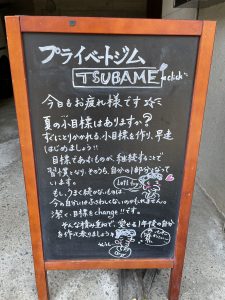 プライベートジム
TSUBAME
今日もお疲れ様です☆
夏の小目標はありますか?
すぐにとりかかれる、小目標を作り、早速
はじめましょう!!
目標であれものが、継続することで
習慣となり、そのうち、自分の1部分となって
いきます。
もし、うまく続かないものは
今の自分にはふさわしくないのかもしれません。
潔く、目標をchange!!です。
そんな積み重ねで、
1年後の自分
を作って参りましょう
Let's try